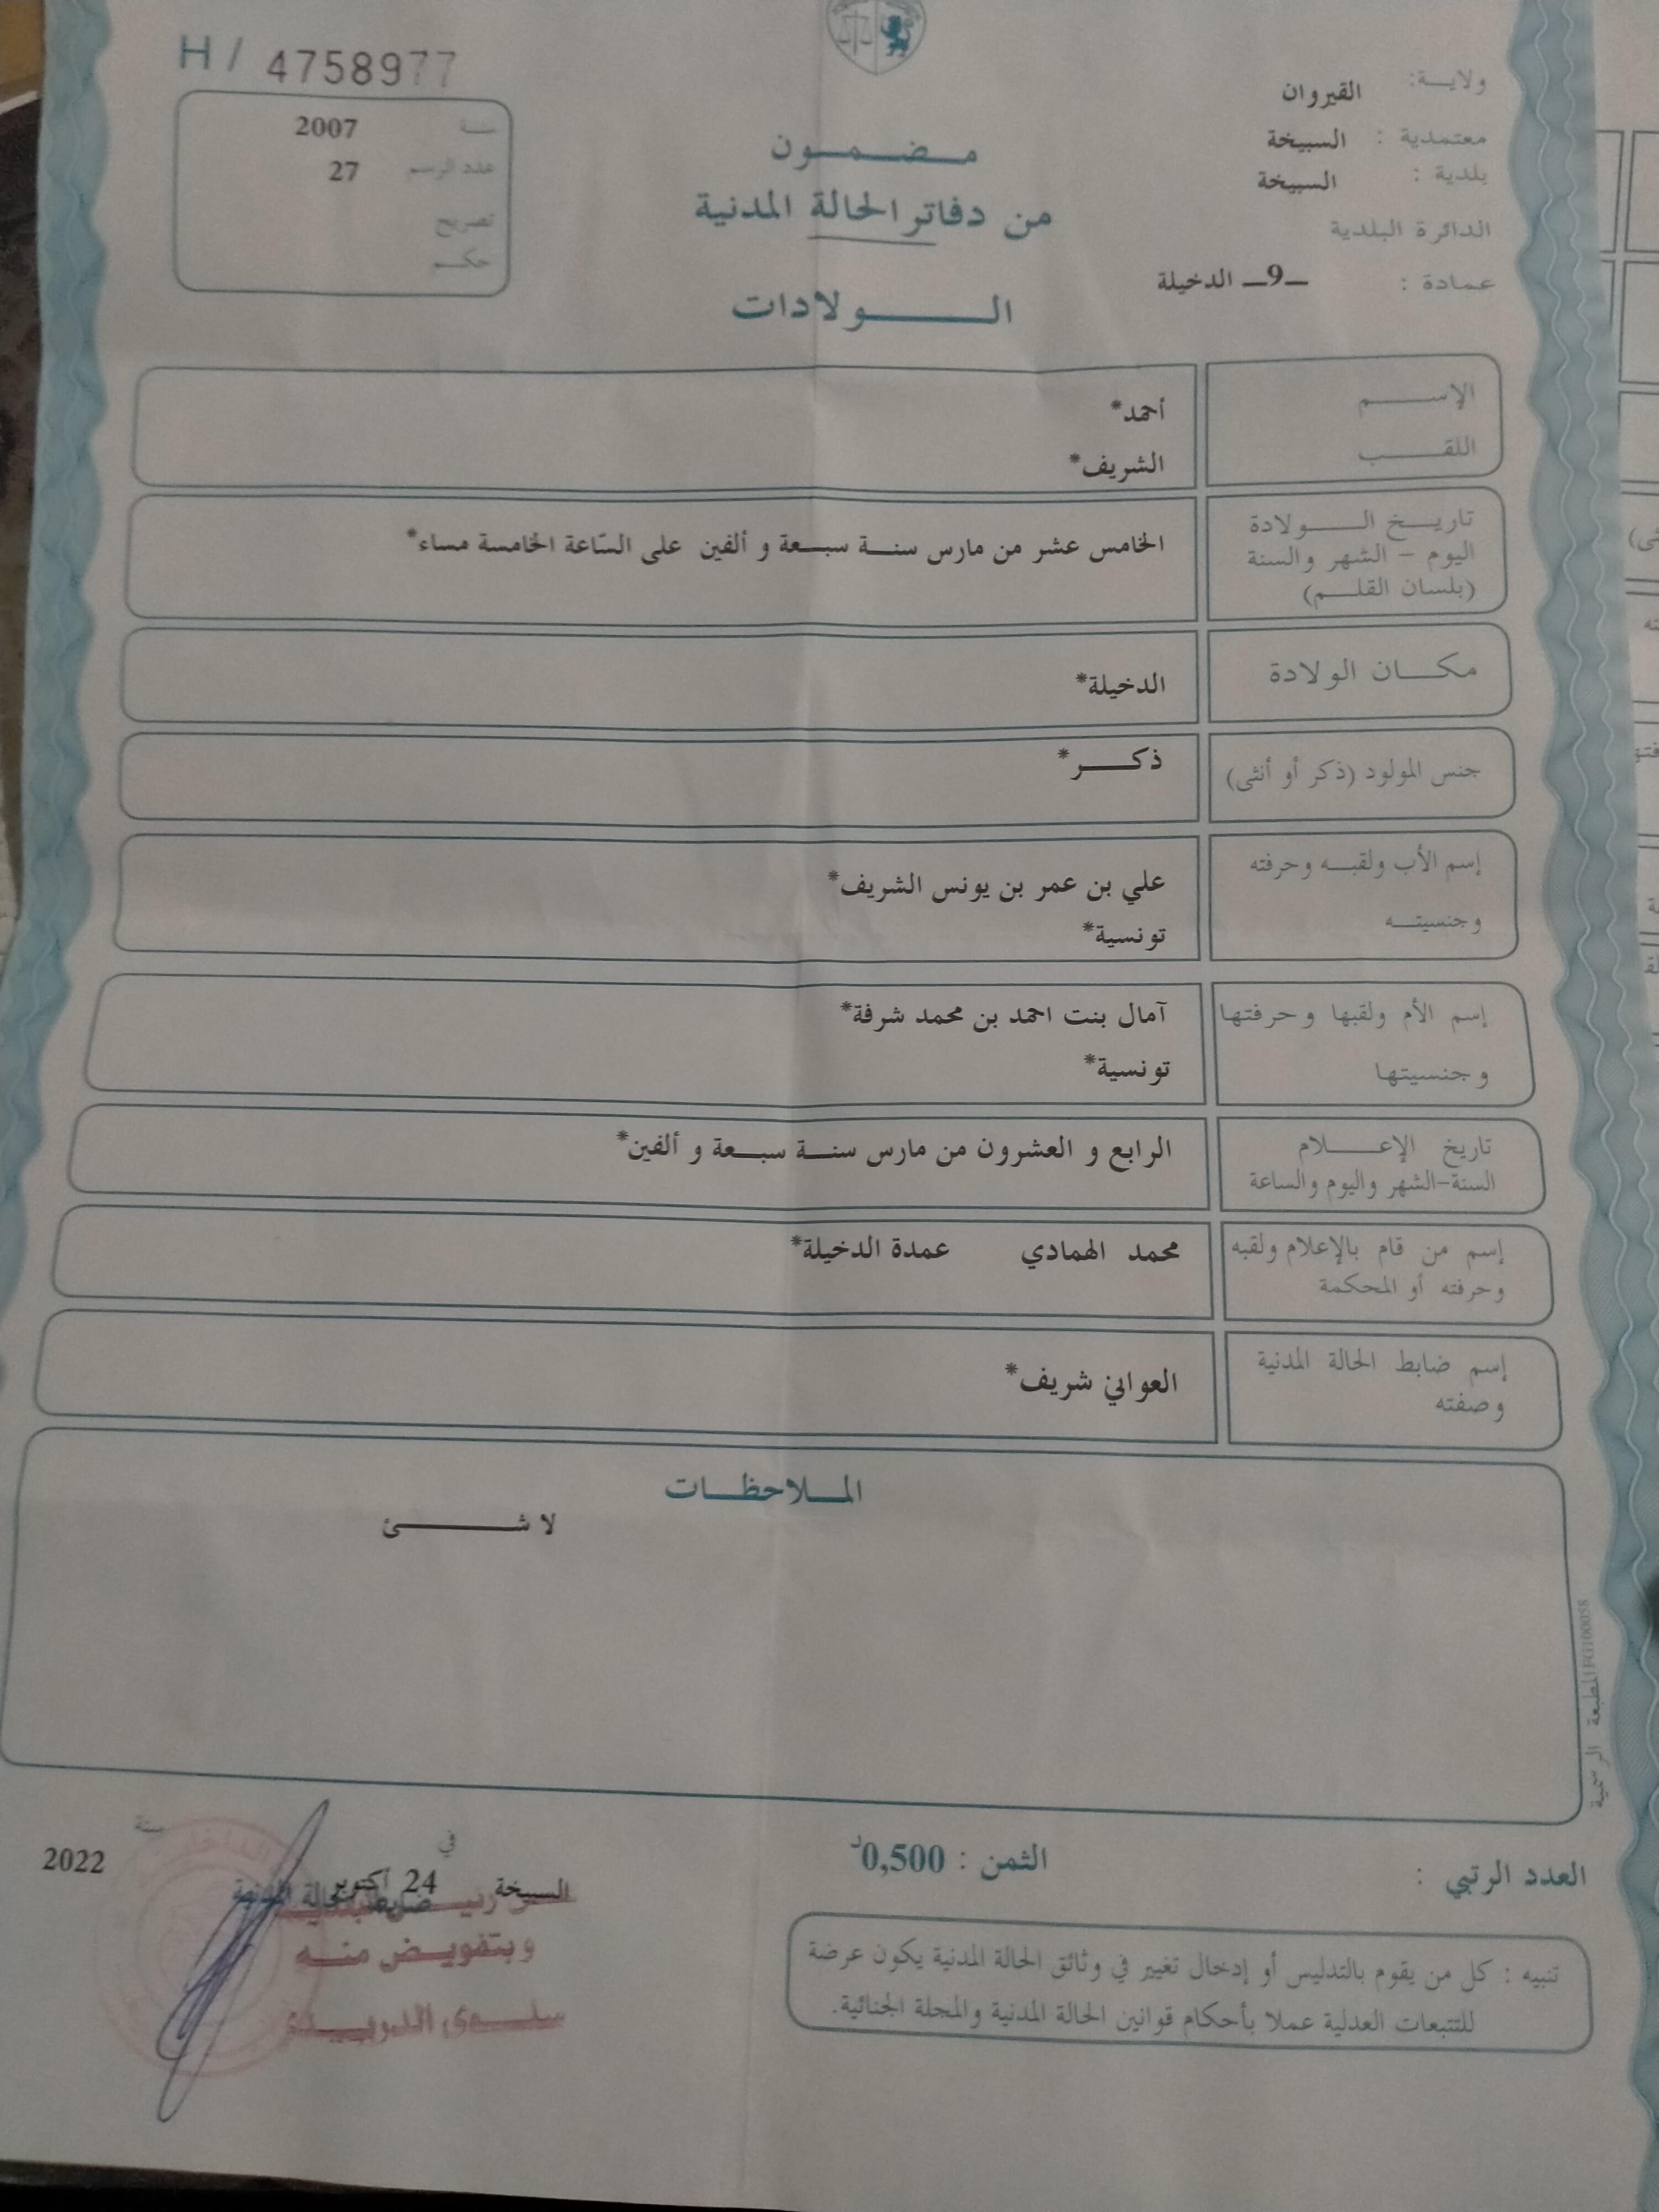 H / 4758977
سنة 2007
عدد الرسم 27
تصريح
حكم
ولاية: القيروان
معتمدية : السبيخة
بلدية : السبيخة
الدائرة البلدية
عمادة : ـ9ـ الدخيلة
مضمون
من دفاتر الحالة المدنية
الولادات
الإسم أحمد*
اللقب الشريف*
تاريخ الولادة
اليوم - الشهر والسنة
(بلسان القلم)
الخامس عشر من مارس سنة سبعة و ألفين على السّاعة الخامسة مساء*
مكان الولادة الدخيلة*
جنس المولود (ذكر أو أنثى) ذكر*
إسم الأب ولقبه وحرفته علي بن عمر بن يونس الشريف*
وجنسيته تونسية*
إسم الأم ولقبها وحرفتها آمال بنت احمد بن محمد شرفة*
وجنسيتها تونسية*
تاريخ الإعلام
السنة-الشهر واليوم والساعة
الرابع و العشرون من مارس سنة سبعة و ألفين*
إسم من قام بالإعلام ولقبه
وحرفته أو المحكمة
محمد الهمادي عمدة الدخيلة*
إسم ضابط الحالة المدنية
وصفته
العوابي شريف*
الملاحظات
لا شئ
المطبعة الرسمية
العدد الرتبي :
الثمن : 0,500د
السبيخة في 24 أكتوبر سنة 2022
ضابط الحالة المدنية
وبتفويض منه
سلوى الدريدي
تنبيه : كل من يقوم بالتدليس أو إدخال تغيير في وثائق الحالة المدنية يكون عرضة
للتتبعات العدلية عملا بأحكام قوانين الحالة المدنية والمجلة الجنائية.